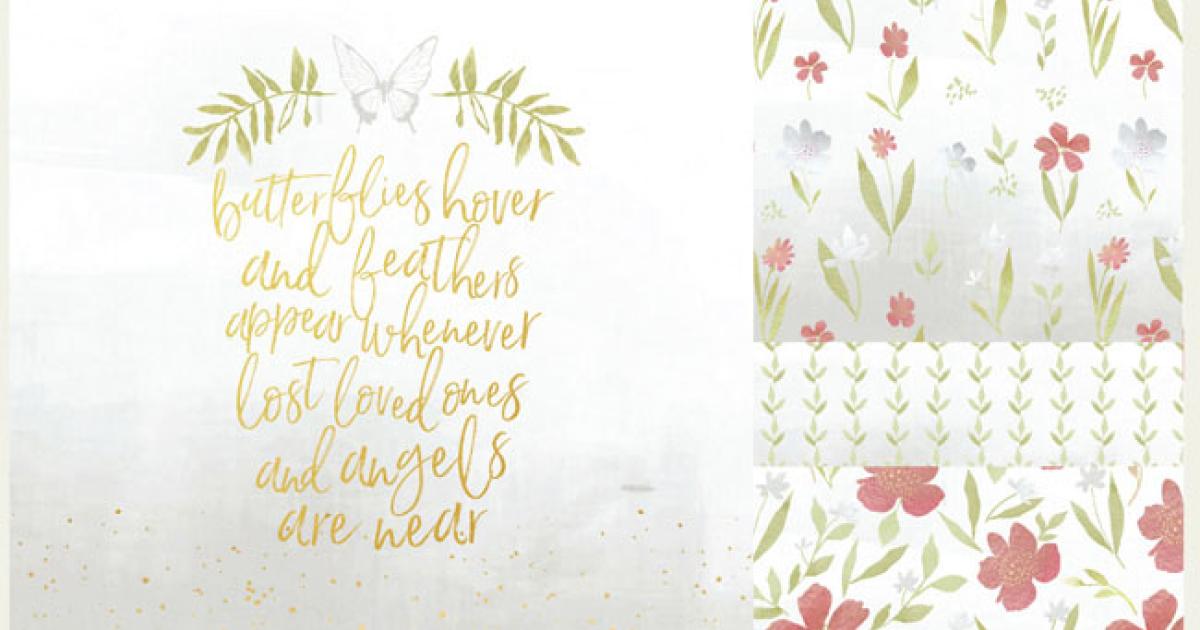 butterflies hover
and feathers
appear whenever
lost loved ones
and angels
are near